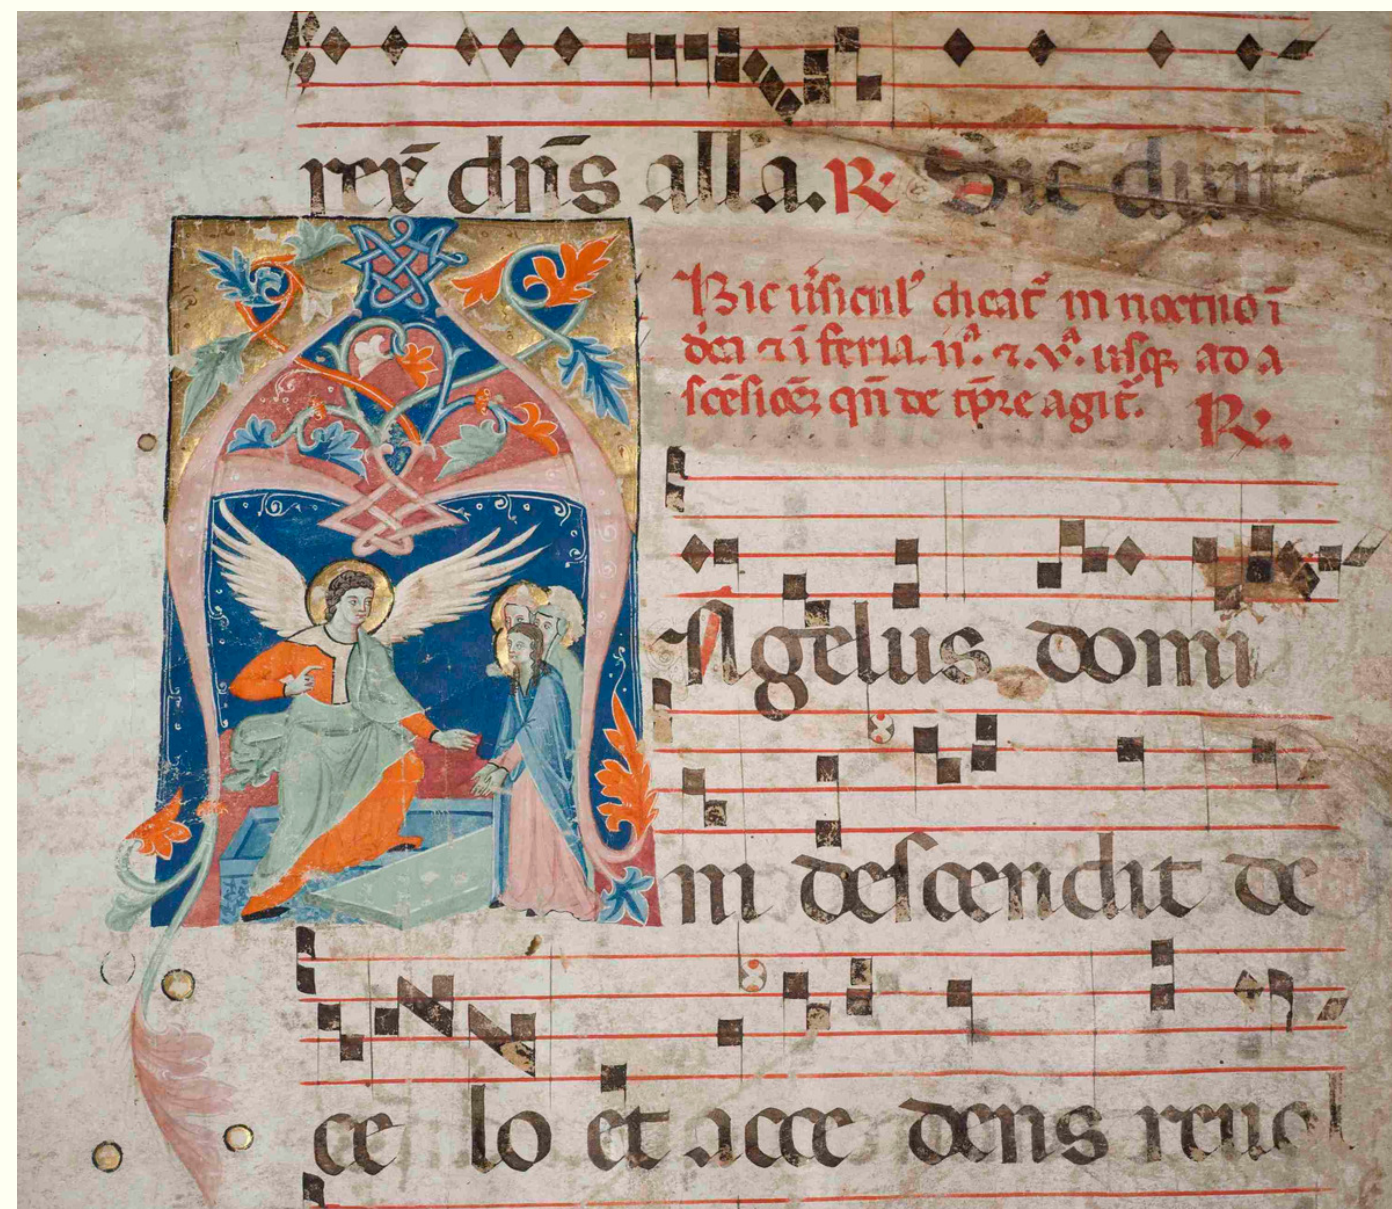 rex̄ dn̄s alla. R. Sic dixit
Hic v̄sicul' dicat̄ in noct̄no ī
dn̄i ⁊ ī feria. ii.ª ⁊ .v.ª usq; ad a
scēsioēȝ qn̄ de tp̄re agit̄. R.
Āgelus domi
ni descendit de
ce lo et acce dens reuol